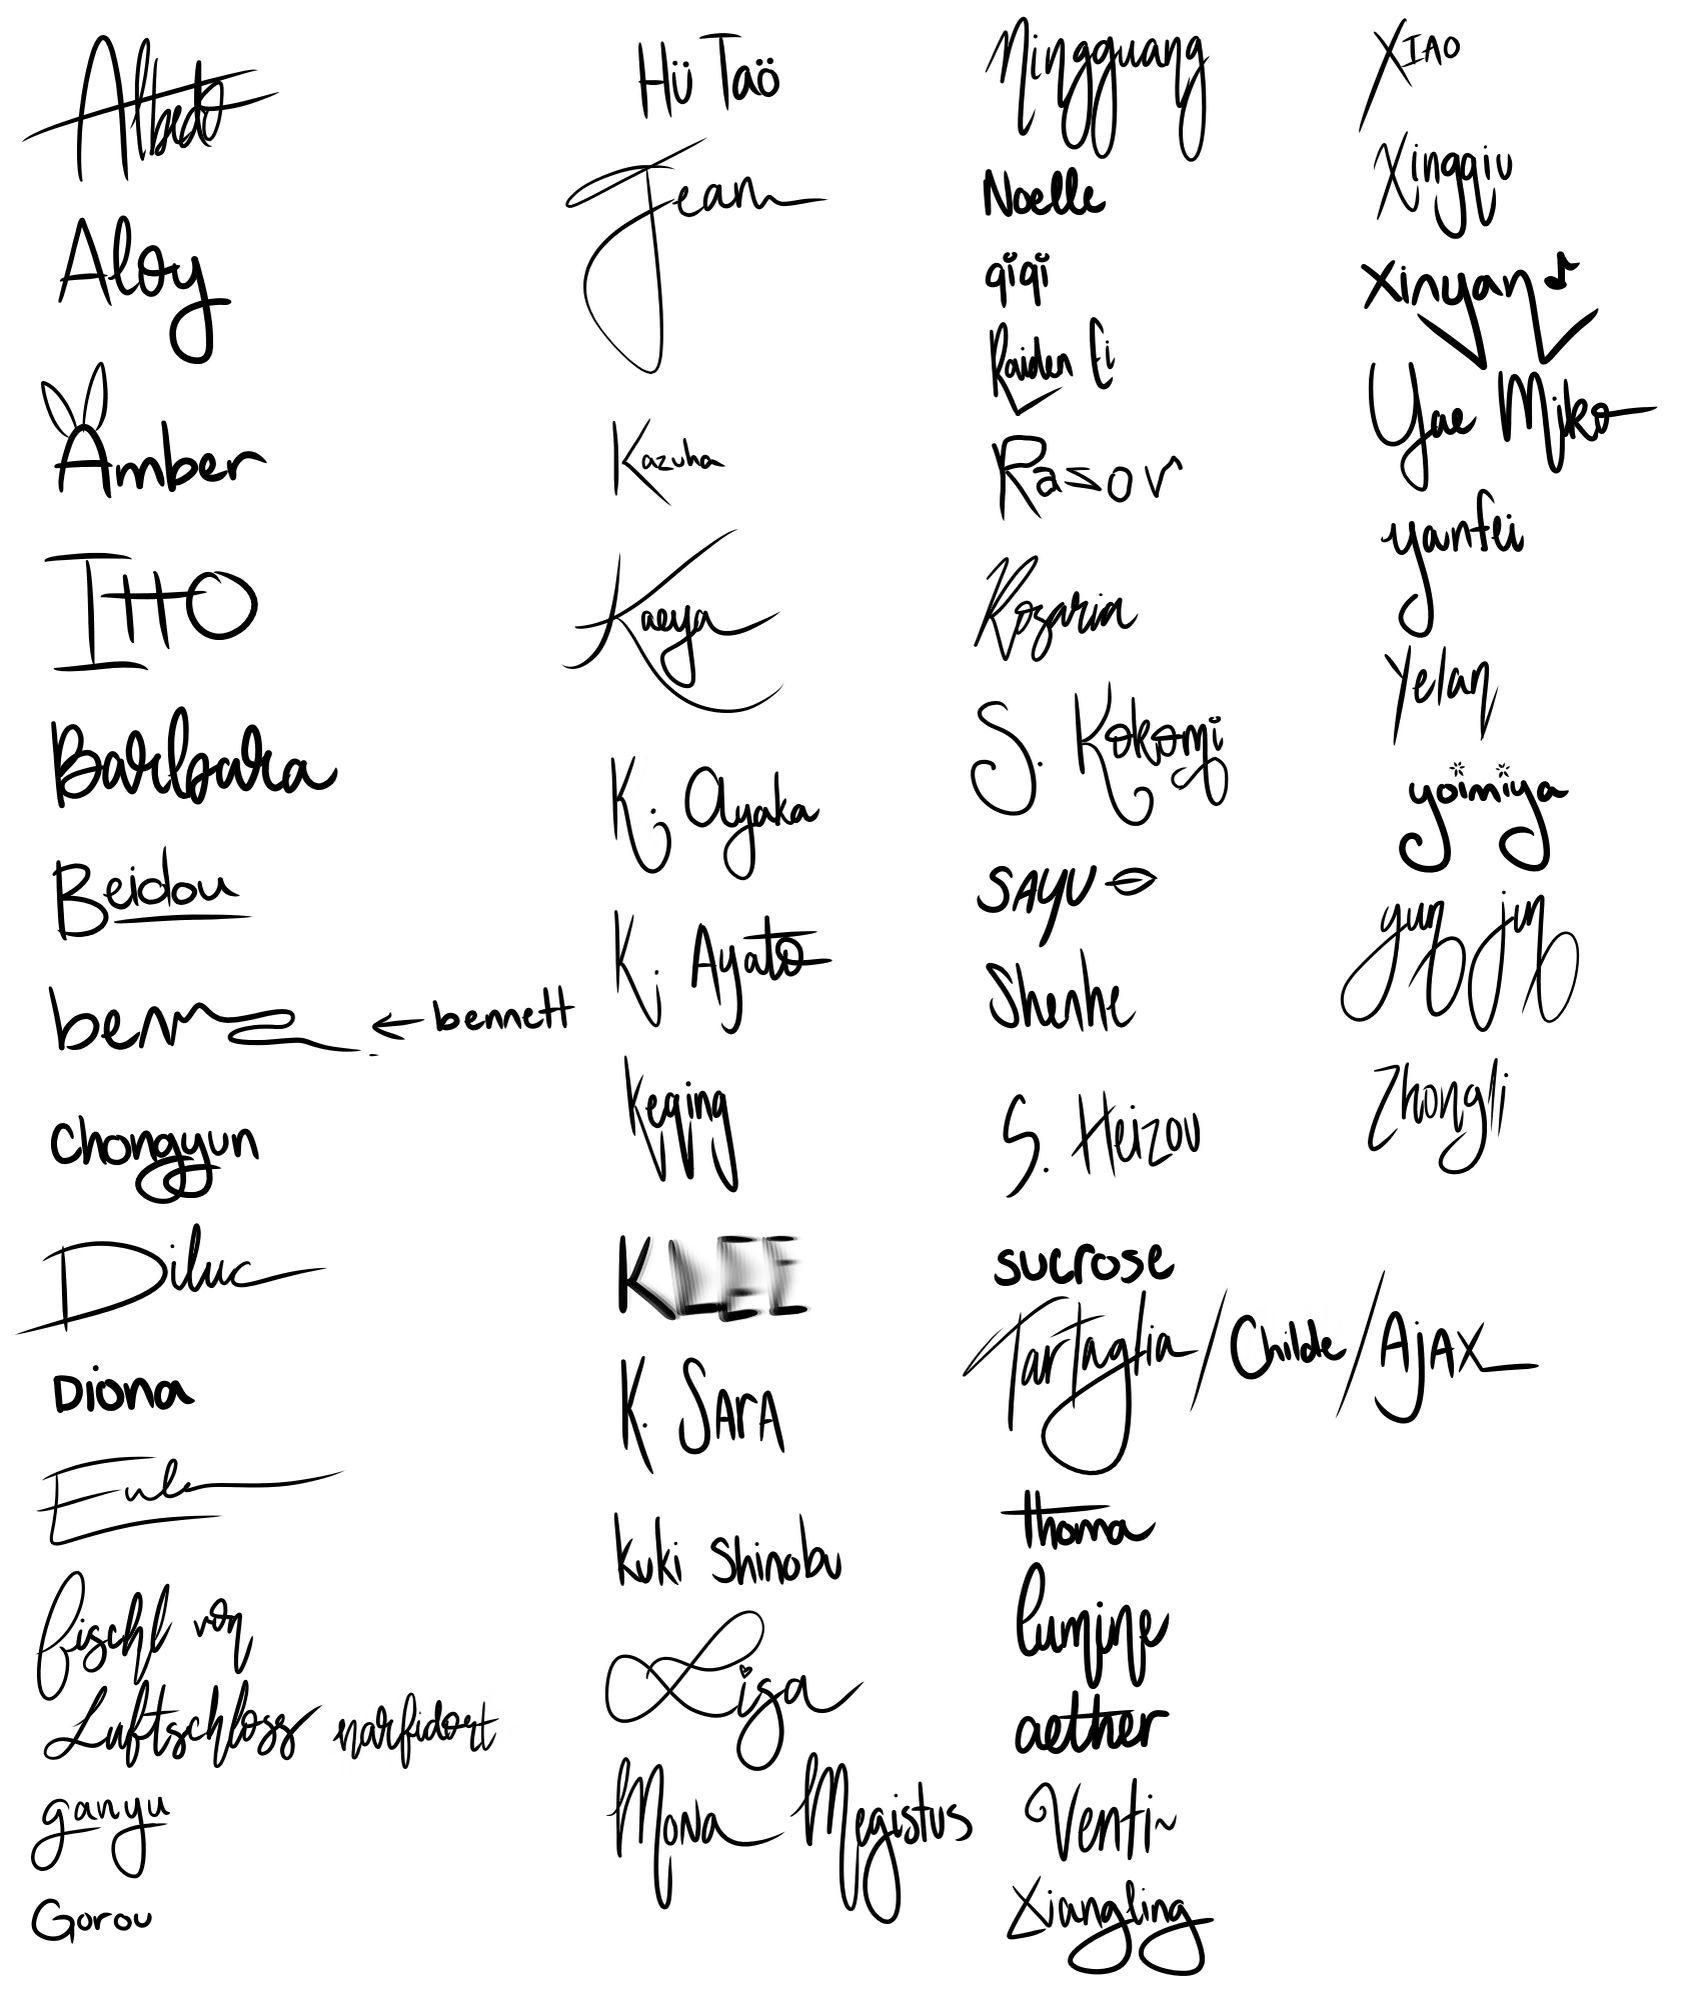 Albedo
Aloy
Amber
ITTO
Barbara
Beidou
benn
← bennett
Chongyun
Diluc
Diona
Eula
fischl von
Luftschloss narfidort
ganyu
Gorou
Hü Taö
Jean
Kazuha
Kaeya
K. Ayaka
K. Ayato
Keqing
KLEE
K. SArA
Kuki Shinobu
Lisa
Mona Megistus
Ningguang
Noelle
qiqi
Raiden Ei
Rasor
Rosaria
S. Kokomi
SAYU
Shenhe
S. Heizou
sucrose
Tartaglia / Childe / AjAX
thoma
lumine
aether
Venti~
Xiangling
XIAO
Xingqiu
Xinyan♪
Yae Miko
yanfei
Yelan
yoimiya
yun jin
Zhongli